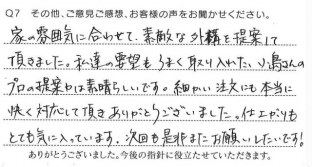 Q7 その他、ご意見ご感想、お客様の声をお聞かせください。
家の雰囲気に合わせて、素敵な外構を提案して
頂きました。私達の要望もうまく取り入れた、小島さんの
プロの提案力は素晴らしいです。細かい注文にも本当に
快く対応して頂きありがとうございました。仕上がりも
とても気に入っています。次回も是非またお願いしたいです!
ありがとうございました。今後の指針に役立たせていただきます。